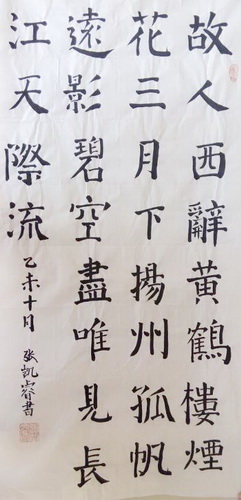 故人西辭黃鶴樓煙
花三月下揚州孤帆
遠影碧空盡唯見長
江天際流
乙未十月
張凱睿書